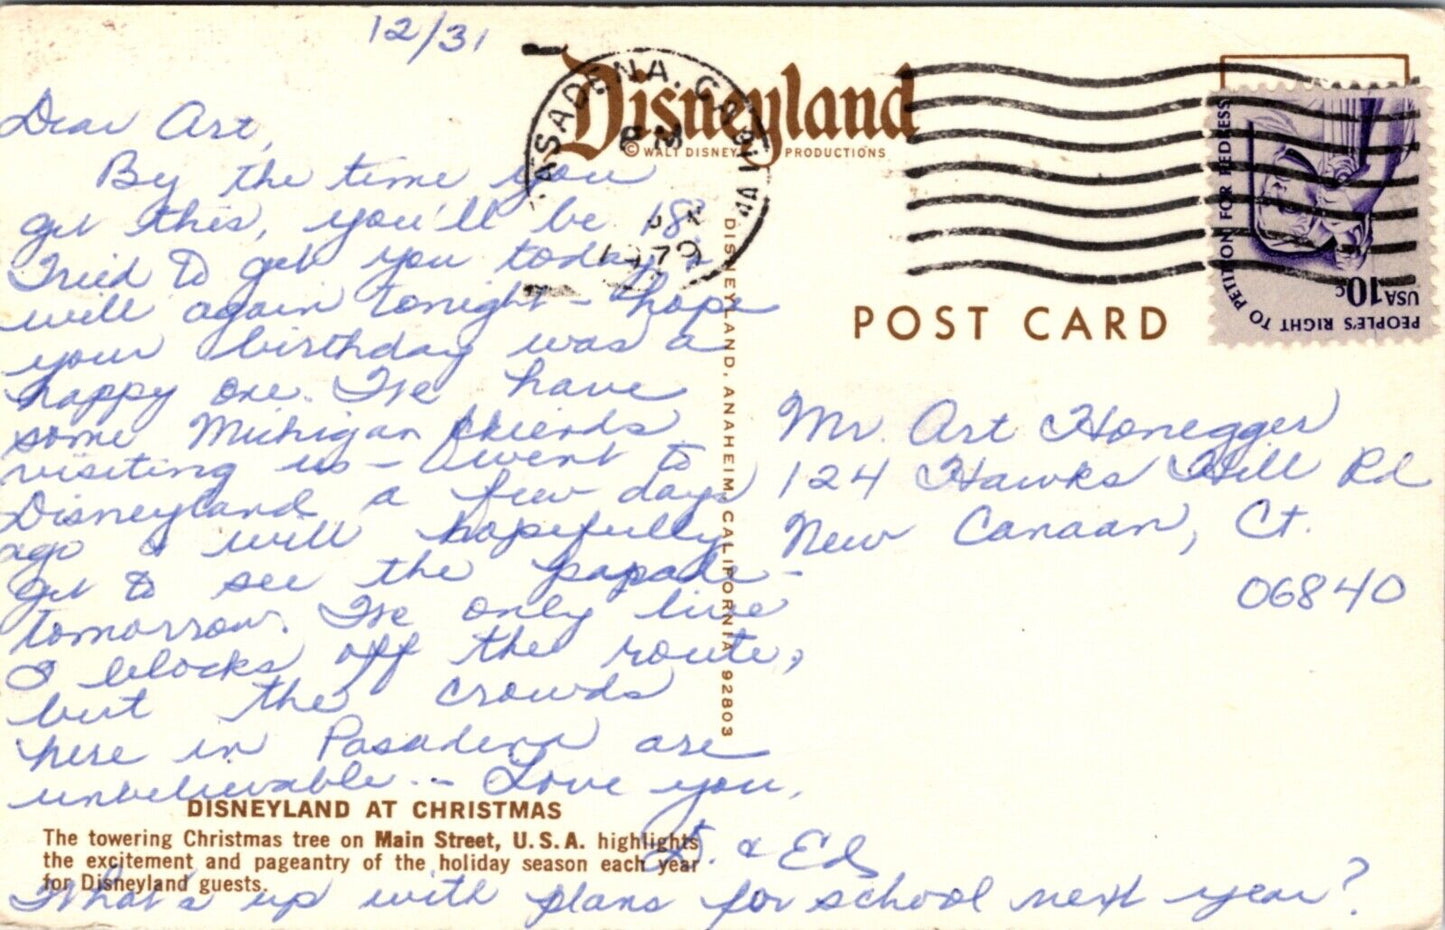 12/31
Dear Art,
By the time you
get this, you'll be 18.
Tried to get you today &
will again tonight - hope
your birthday was a
happy one. I've have
some Michigan friends
visiting us - went to
Disneyland a few days
ago & will hopefully
get to see the parade -
tomorrow. I've only live
blocks off the route,
but the crowds
here in Pasadena are
unbelievable. - Love you,
D. & Ed
What's up with plans for school next year?
DISNEYLAND AT CHRISTMAS
The towering Christmas tree on Main Street, U.S.A. highlights
the excitement and pageantry of the holiday season each year
for Disneyland guests.
Disneyland
© WALT DISNEY PRODUCTIONS
DISNEYLAND, ANAHEIM, CALIFORNIA 92803
PASADENA, CA
PM
1979
PEOPLE'S RIGHT TO PETITION FOR REDRESS
USA 10c
POST CARD
Mr. Art Honegger
124 Hawks Hill Rd
New Canaan, Ct.
06840